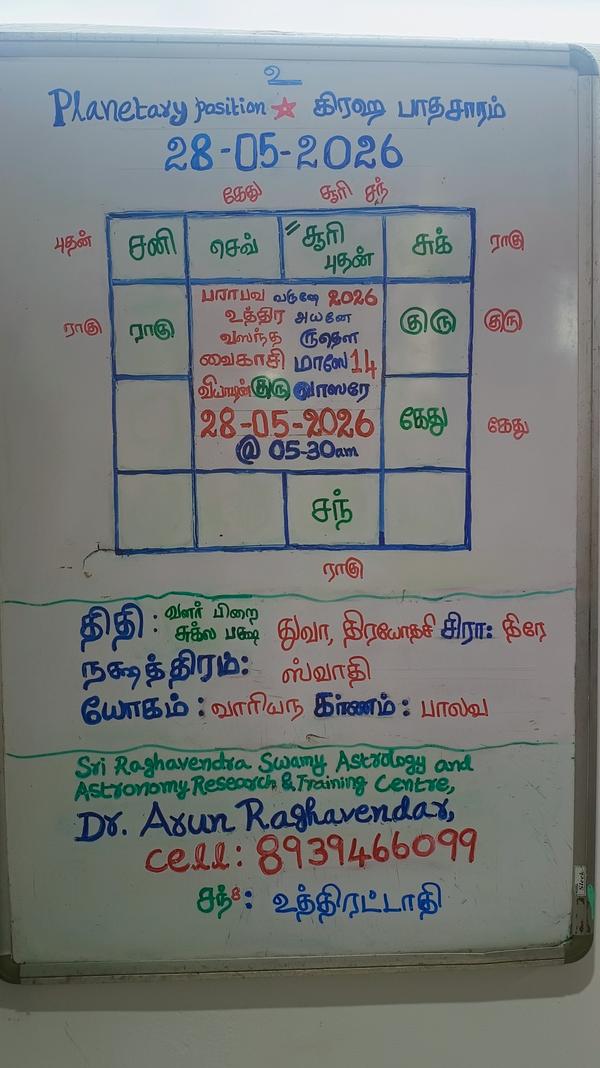 உ
Planetary position கிரஹ பாதசாரம்
28-05-2026
கேது சூரி சந்
புதன் சனி செவ் சூரி புதன் சுக் ராகு
பராபவ வருஷே 2026
உத்திர அயனே
ராகு ராகு வஸந்த ருதௌ குரு குரு
வைகாசி மாஸே 14
குரு வாஸரே
28-05-2026 கேது கேது
@ 05-30am
சந்
ராகு
திதி : வளர் பிறை
சுக்ல பக்ஷ துவா, திரயோதசி சிரா: திரே
நக்ஷத்திரம்: ஸ்வாதி
யோகம் : வாரியந கர்ணம் : பாலவ
Sri Raghavendra Swamy Astrology and
Astronomy Research & Training Centre,
Dr. Arun Raghavendar,
cell: 8939466099
சந்8: உத்திரட்டாதி